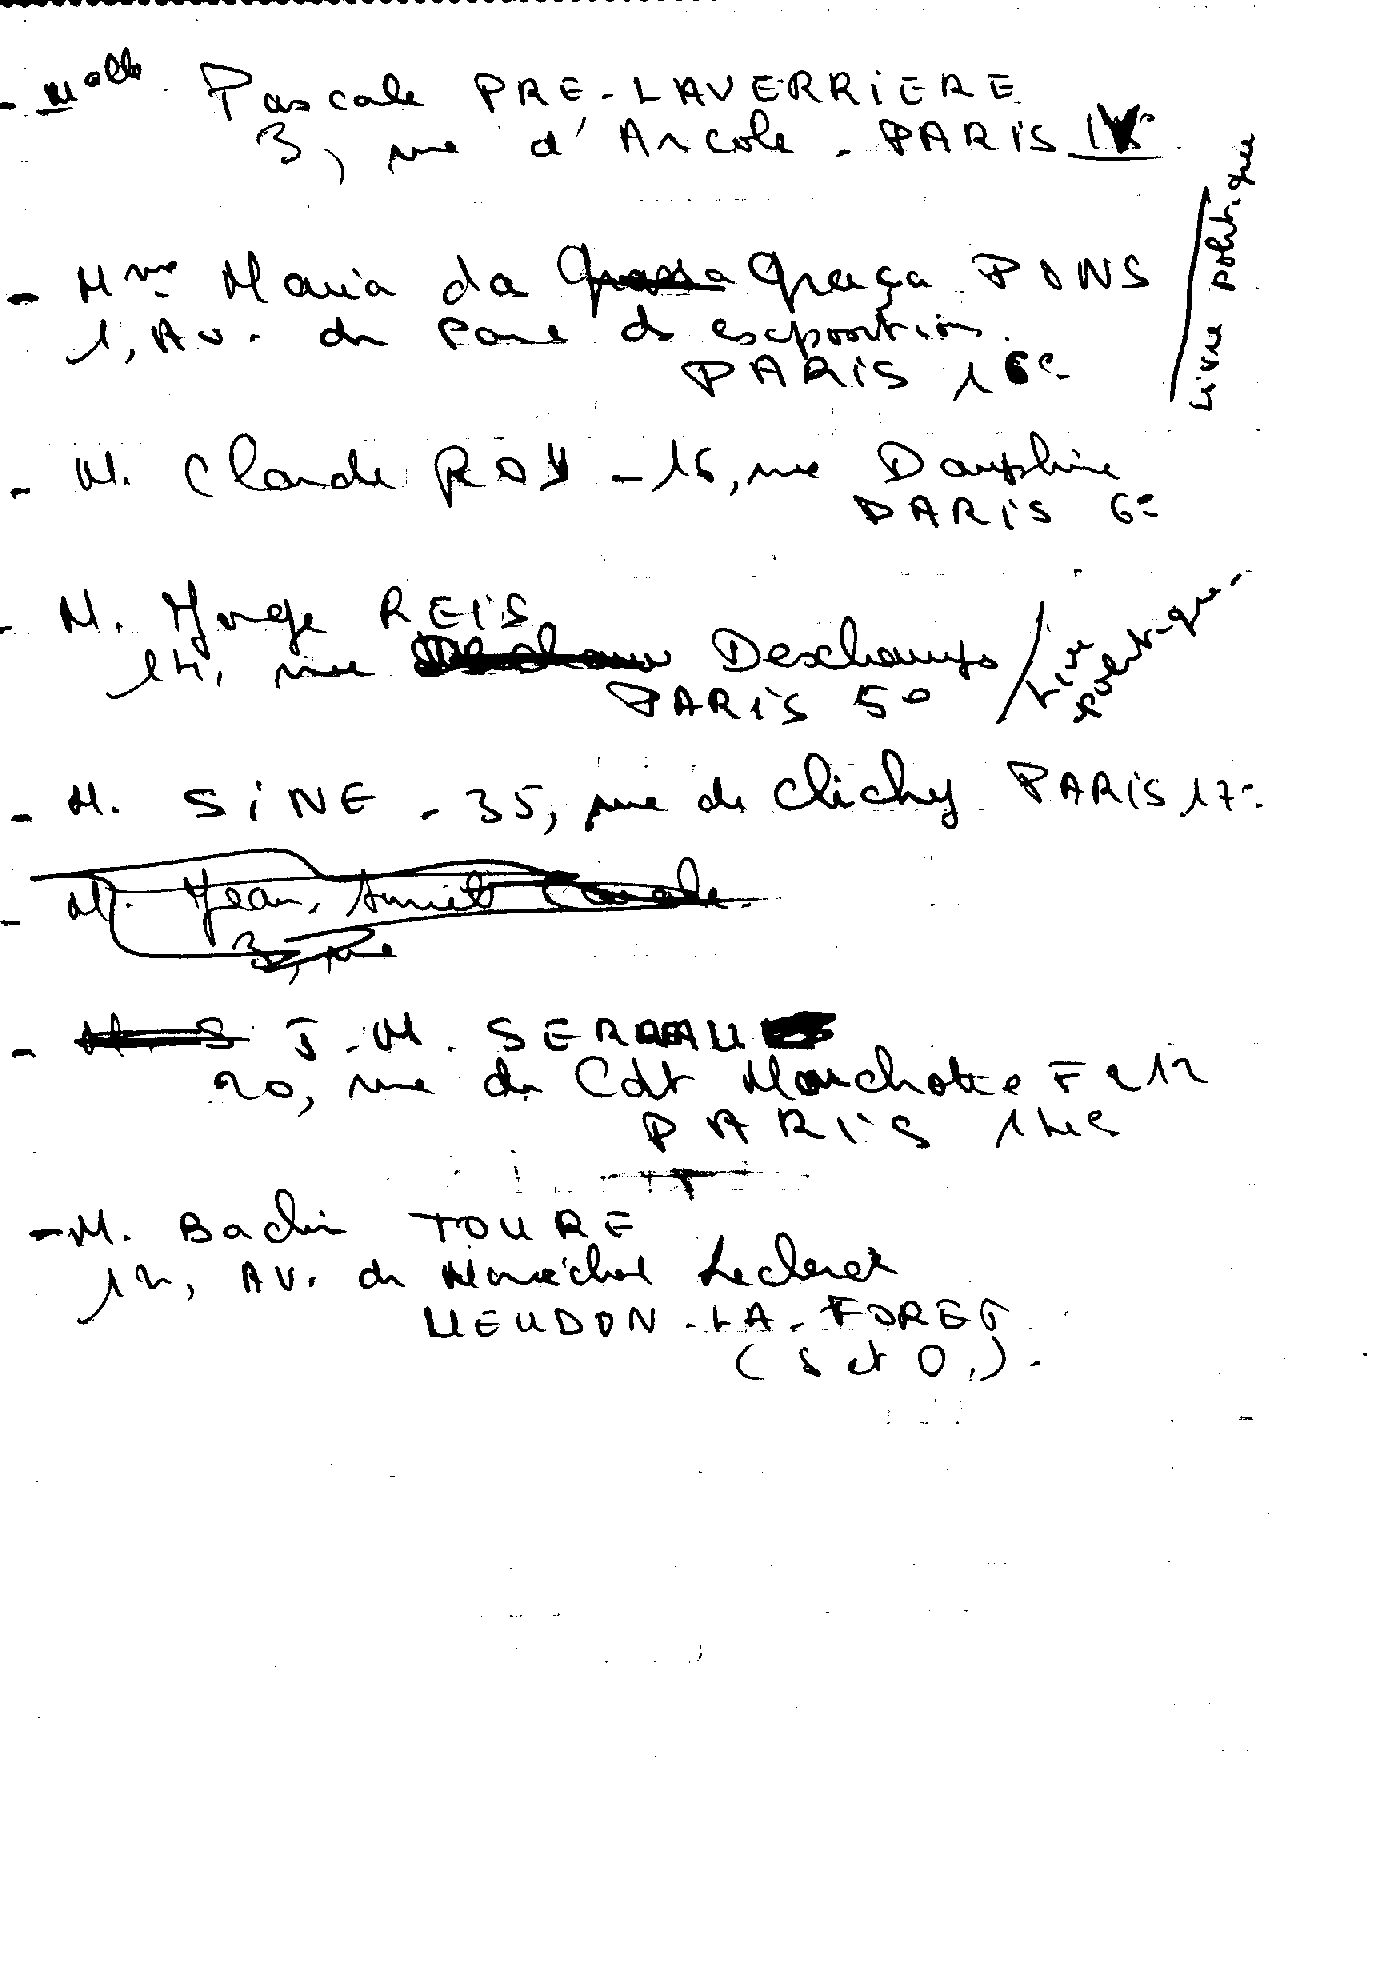 - Melle Pascale PRE-LAVERRIERE
3, rue d'Arcole - PARIS IVe
- Mme Maria da Graça PONS
1, Av. du Parc des exposition.
PARIS 16e
Livre politique
- M. Claude ROY - 16, rue Dauphine
PARIS 6e
- M. Jorge REIS
14, rue Deschamps
PARIS 5e
Livre politique.
- M. SiNE - 35, rue de Clichy PARIS 17e.
- M. Jean,
3, rue
- J.M. SERREAU
20, rue du Cdt Mouchotte F 212
PARIS 14e
- M. Bachir TOURE
12, AV. du Maréchal Leclerc
MEUDON-LA-FORET
(S et O.).